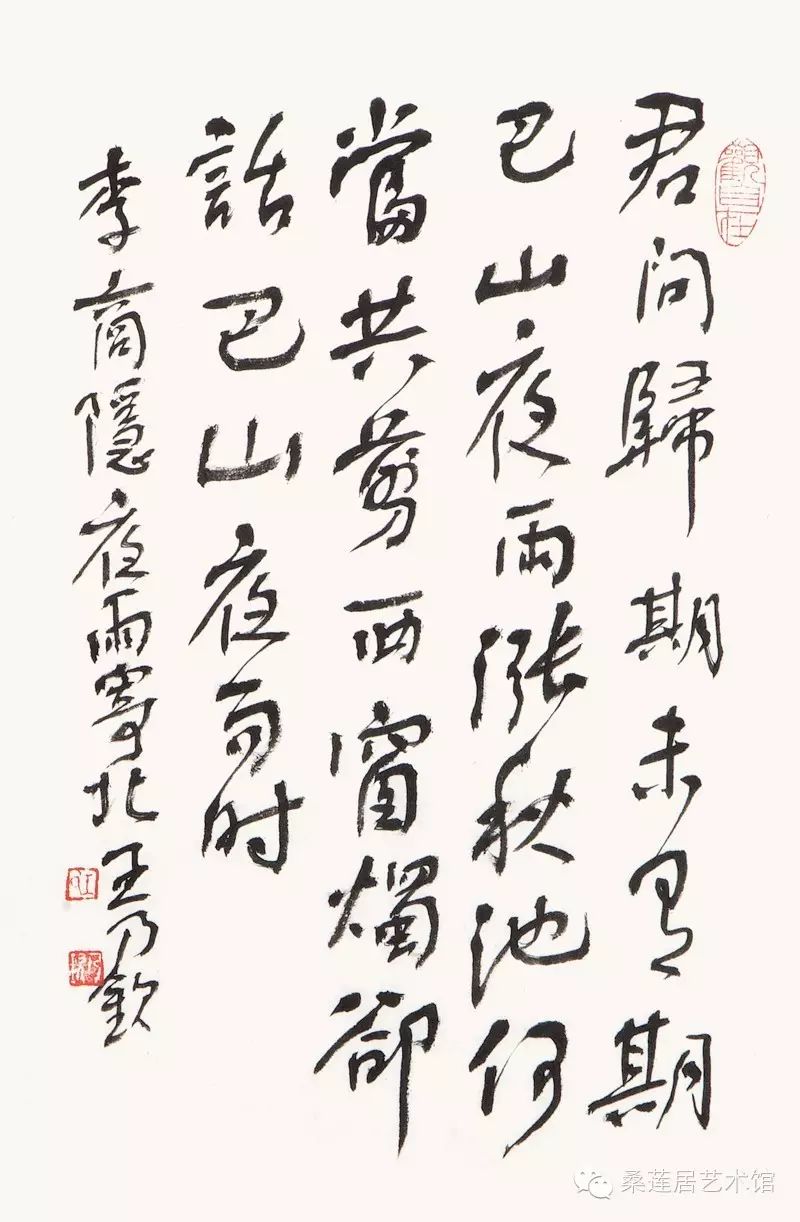 觀自在
君问歸期未有期
巴山夜雨漲秋池何
當共剪西窗燭卻
話巴山夜雨时
李商隱夜雨寄北 王乃欽
桑莲居艺术馆